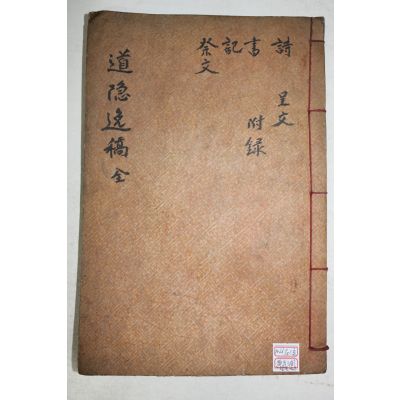 詩
呈文
書
附録
記
祭文
道隐逸稿全